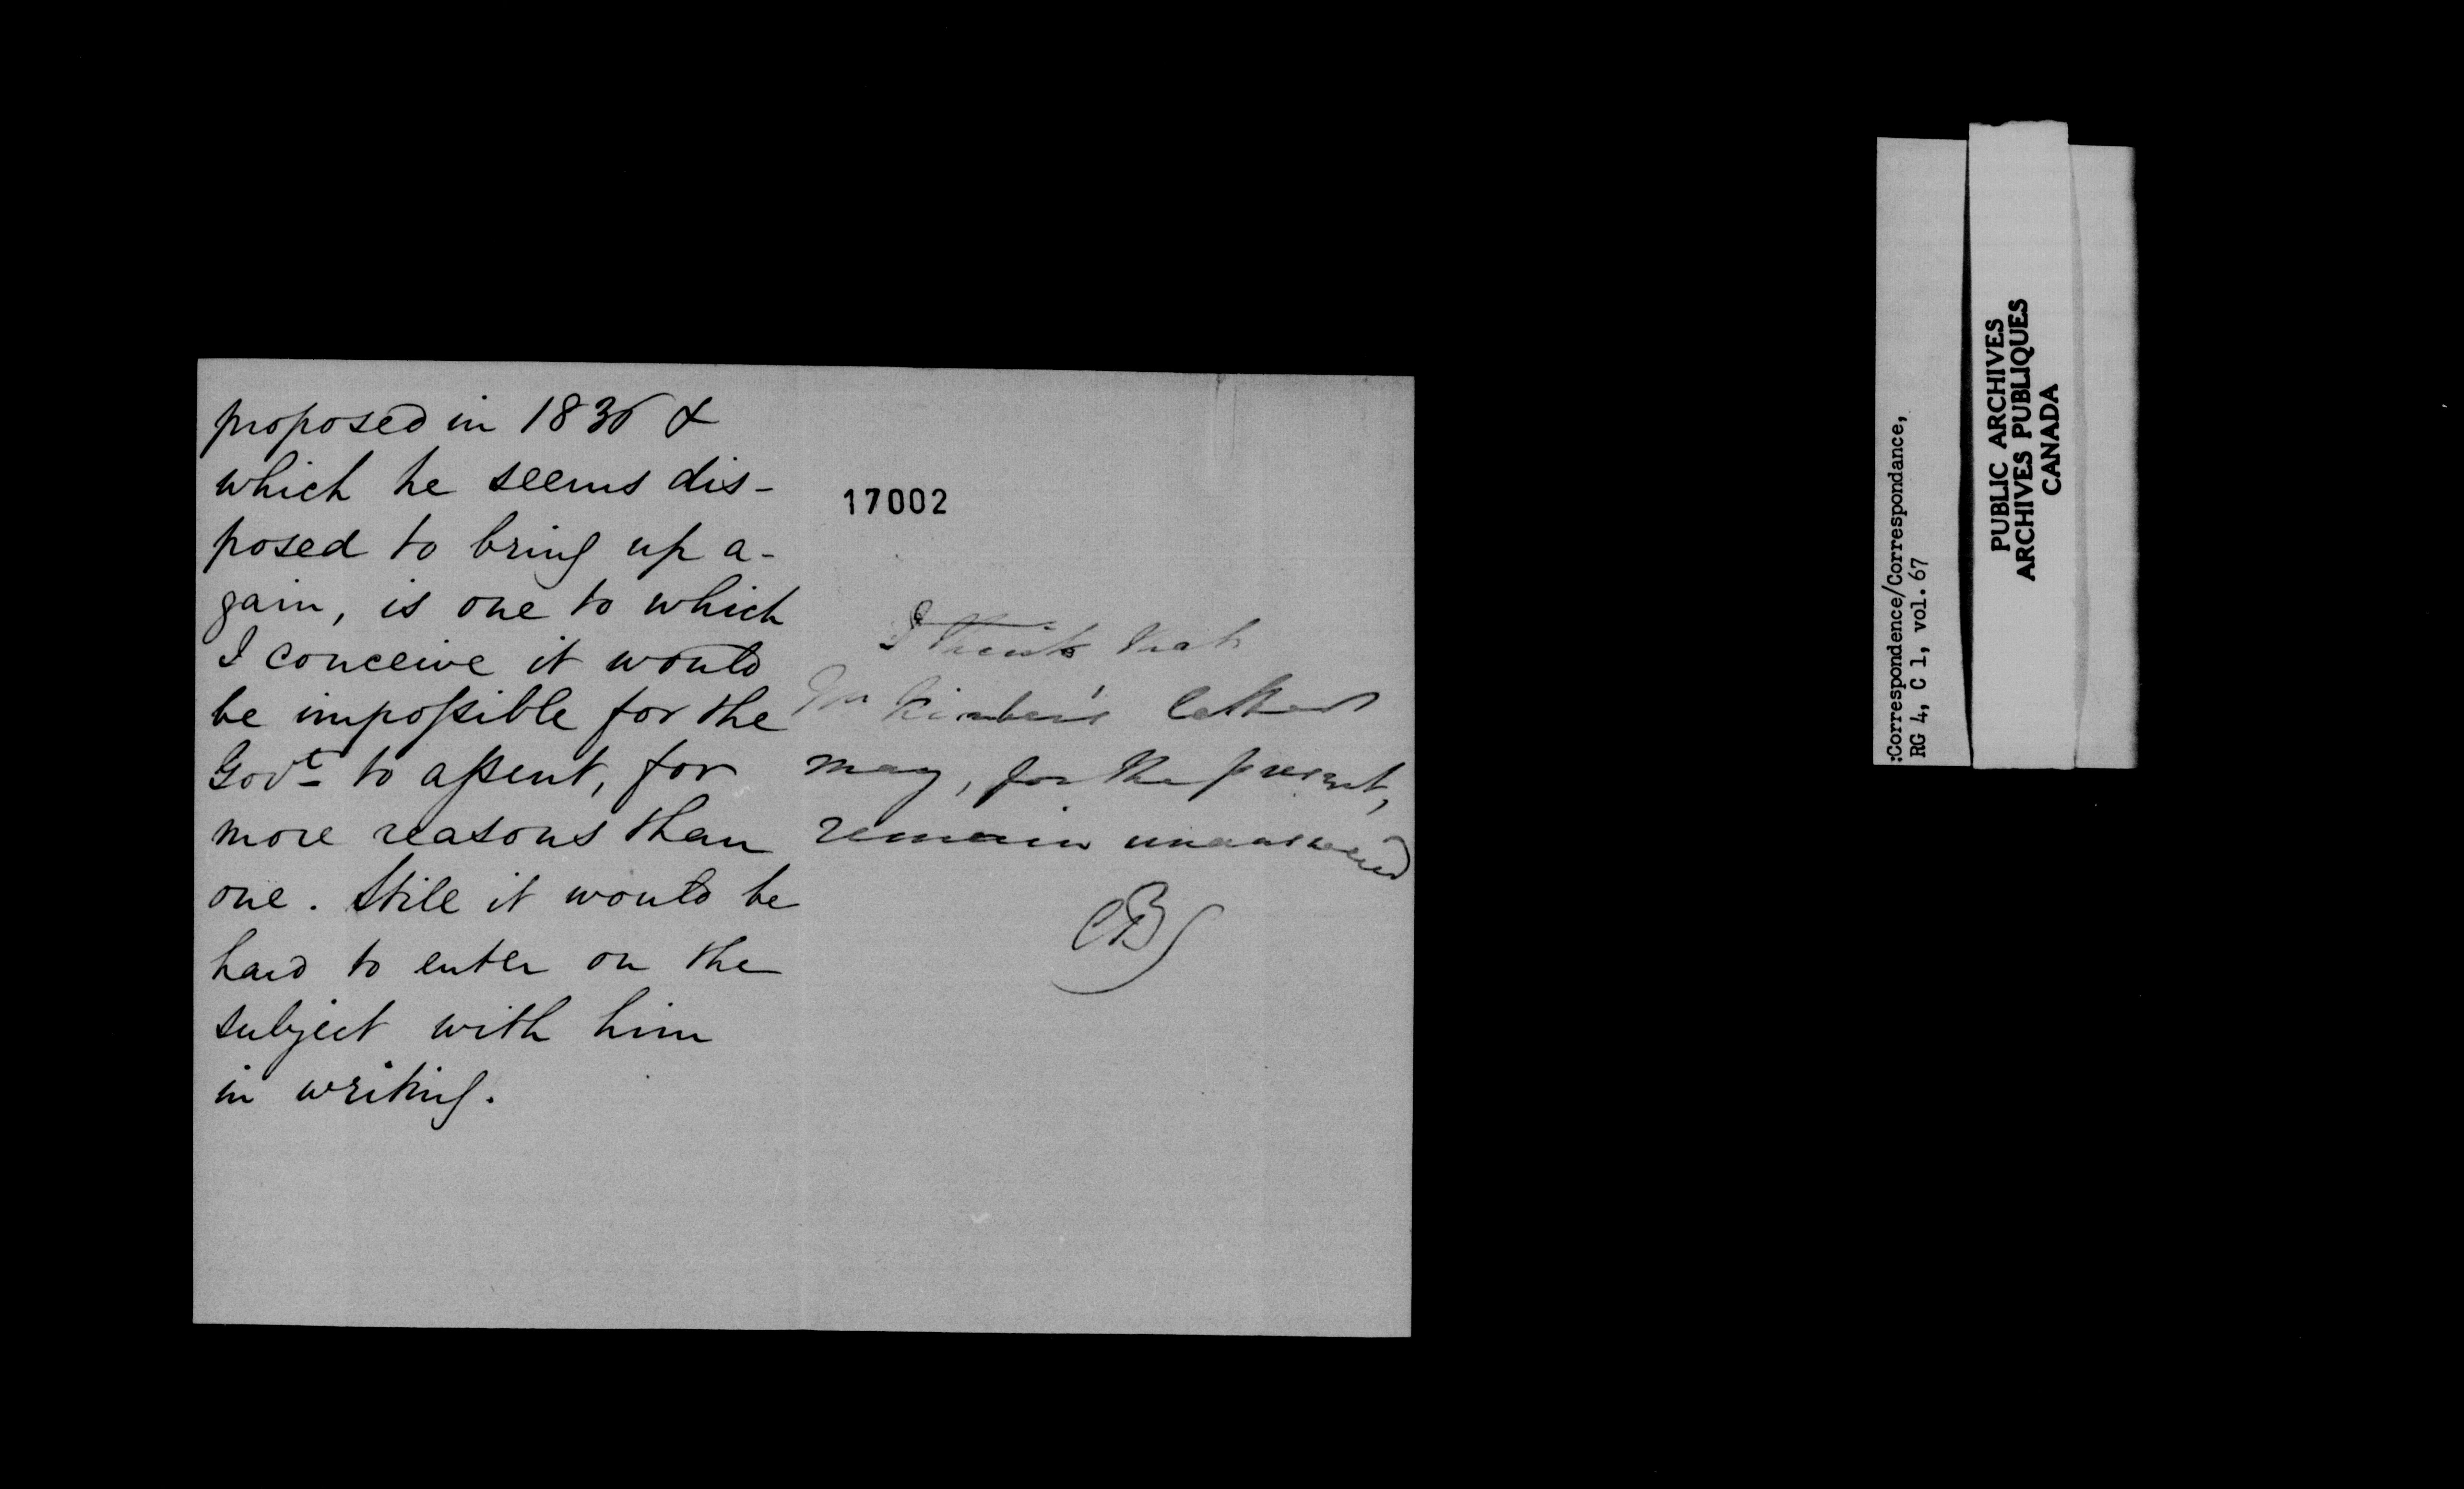 proposed in 1836 &
which he seems dis-
posed to bring up a-
gain, is one to which
I conceive it would
be impossible for the
Govt to assent, for
more reasons than
one. Still it would be
hard to enter on the
subject with him
in writing.
17002
I think that
Mr Kimber's letter
may, for the present,
remain unanswered
CB
:Correspondence/Correspondance,
RG 4, C 1, vol. 67
PUBLIC ARCHIVES
ARCHIVES PUBLIQUES
CANADA